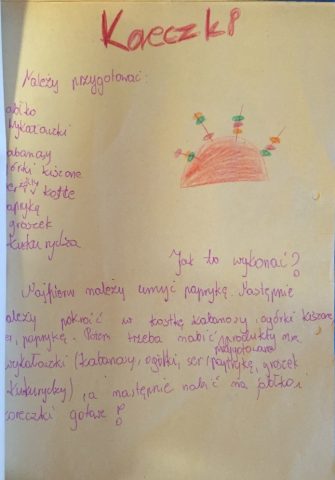 Koreczki
Należy przygotować:
abłko
wykałaczki
abanosy
górki kiszone
ser żółty kostkę
aprykę
groszek
kukurydza
Jak to wykonać?
Najpierw należy umyć paprykę. Następnie
ależy pokroić w kostkę kabanosy, ogórki kiszone
er, paprykę. Potem trzeba nabić produkty na
przygotowane
wykałaczki (kabanosy, ogórki, ser, paprykę, groszek
kukurydzę), a następnie nabić na jabłko.
oreczki gotowe!